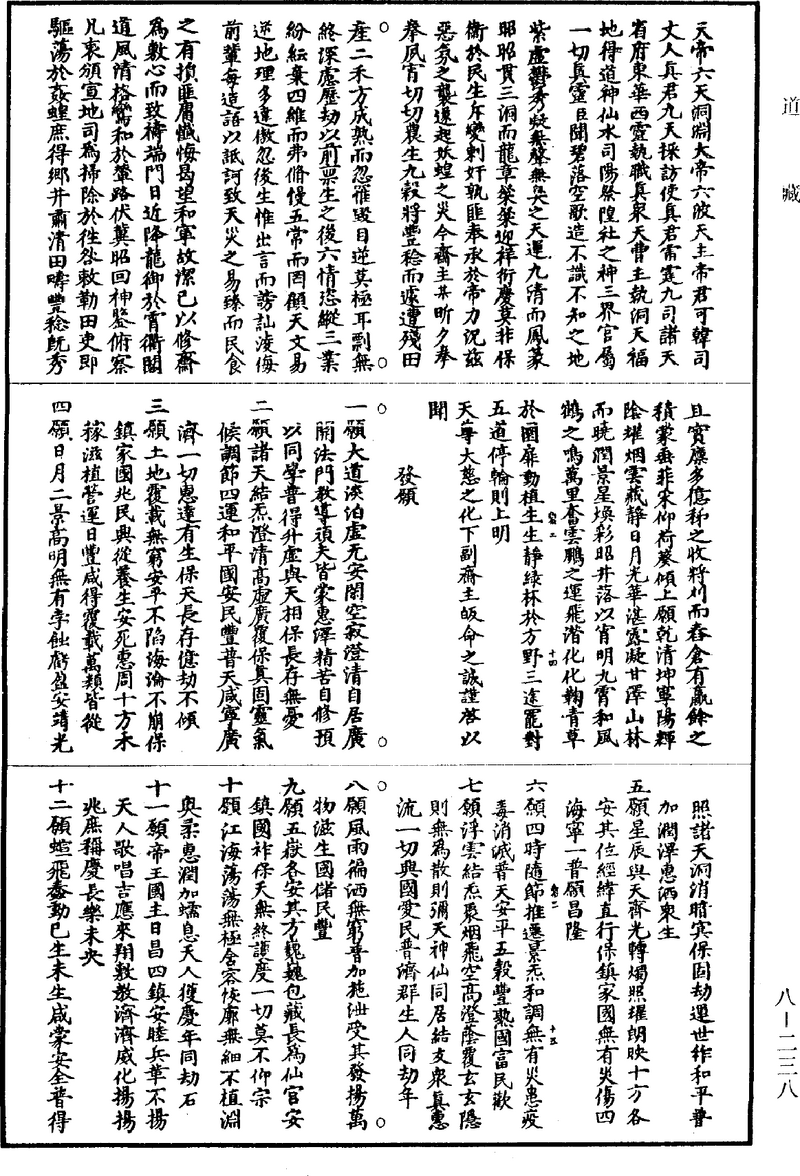 道藏
天帝六天洞淵大帝六波天主帝君可韓司
丈人真君九天採訪使真君雷霆九司諸天
省府東華西靈執職真衆天曹主執洞天福
地得道神仙水司陽祭隍社之神三界官屬
一切真靈臣聞碧落空歌造不識不知之地
紫虛鬱秀凝無聲無臭之天運九清而鳳篆
昭昭貫三洞而龍章粲粲迎祥衍慶莫非保
衞於民生斥變剿奸孰匪奉承於帝力況茲
惡氛之襲遽起妖蝗之災今齋主某昕夕拳
拳夙宵切切農生九穀將豐稔而遽遭殘田
產二禾方成熟而忽罹毀目逆莫極耳剽無
終深慮歷劫以前稟生之後六情恣縱三業
紛紜棄四維而弗脩慢五常而罔顧天文易
逆地理多違傲忽後生惟出言而謗訕淩侮
前輩每造語以詆訶致天災之易臻而民食
之有損匪膚懺悔曷望和寧故潔已以修齋
為敷心而致禱端門日近降龍御於霄衢閶
道風清格鸞和於輦路伏冀昭回神鑒俯察
凡衷頒宣地司為掃除於徃咎敕勒田吏即
驅蕩於姦蝗庶得鄉井肅清田疇豐稔旣秀
且實糜多億秭之收將刈而舂倉有贏餘之
積蒙垂菲宋仰荷葵傾上願乾清坤寧陽輝
陰耀烟雲藏静日月光華湛露凝甘澤山林
而曉潤景星煥彩昭井落以宵明九霄和風
鶴之鳴萬里奮雲鵬之運飛潛化化鞠青草
於圜扉動植生生靜綠林於方野三途罷對
五道停輪則上明
天尊大慈之化下副齋主皈命之誠謹啓以
聞
發願
一願大道淡泊虛无安閑空寂澄清自居廣
開法門教導頑夫皆蒙惠澤精苦自修預
以同學普得升虛與天相保長存無憂
二願諸天結炁澄清高虛廣覆保真固靈氣
候調節四運和平國安民豐普天咸寧廣
濟一切惠達有生保天長存億劫不傾
三願土地覆載無窮安平不陷海淪不崩保
鎮家國兆民興從養生安死惠周十方禾
稼滋植營運日豐咸得覆載萬類皆從
四願日月二景高明無有孛蝕虧盈安靖光
照諸天洞消暗冥保固劫運世作和平普
加潤澤惠洒衆生
五願星辰與天齊光轉燭照耀朗映十方各
安其位經緯直行保鎮家國無有災傷四
海寧一普願昌隆
六願四時隨節推遷景炁和調無有災患疫
毒消滅普天安平五穀豐熟國富民歡
七願浮雲結炁聚烟飛空高澄蔭覆玄玄隱
則無為散則彌天神仙同居結友衆真惠
流一切興國愛民普濟群生人同劫年
八願風雨徧洒無窮普加施泄受其發揚萬
物滋生國儲民豐
九願五嶽各安其方巍巍包藏長為仙官安
鎮國祚保天無終護度一切莫不仰宗
十願江海蕩蕩無極含容恢廓無細不植淵
與柔惠潤加蠕息天人獲慶年同劫石
十一願帝王國主日昌四鎮安睦兵革不揚
天人歌唱吉應來翔敷教濟濟威化揚揚
兆庶稱慶長樂未央
十二願蝖飛蠢動已生未生咸蒙安全普得
八－二三八